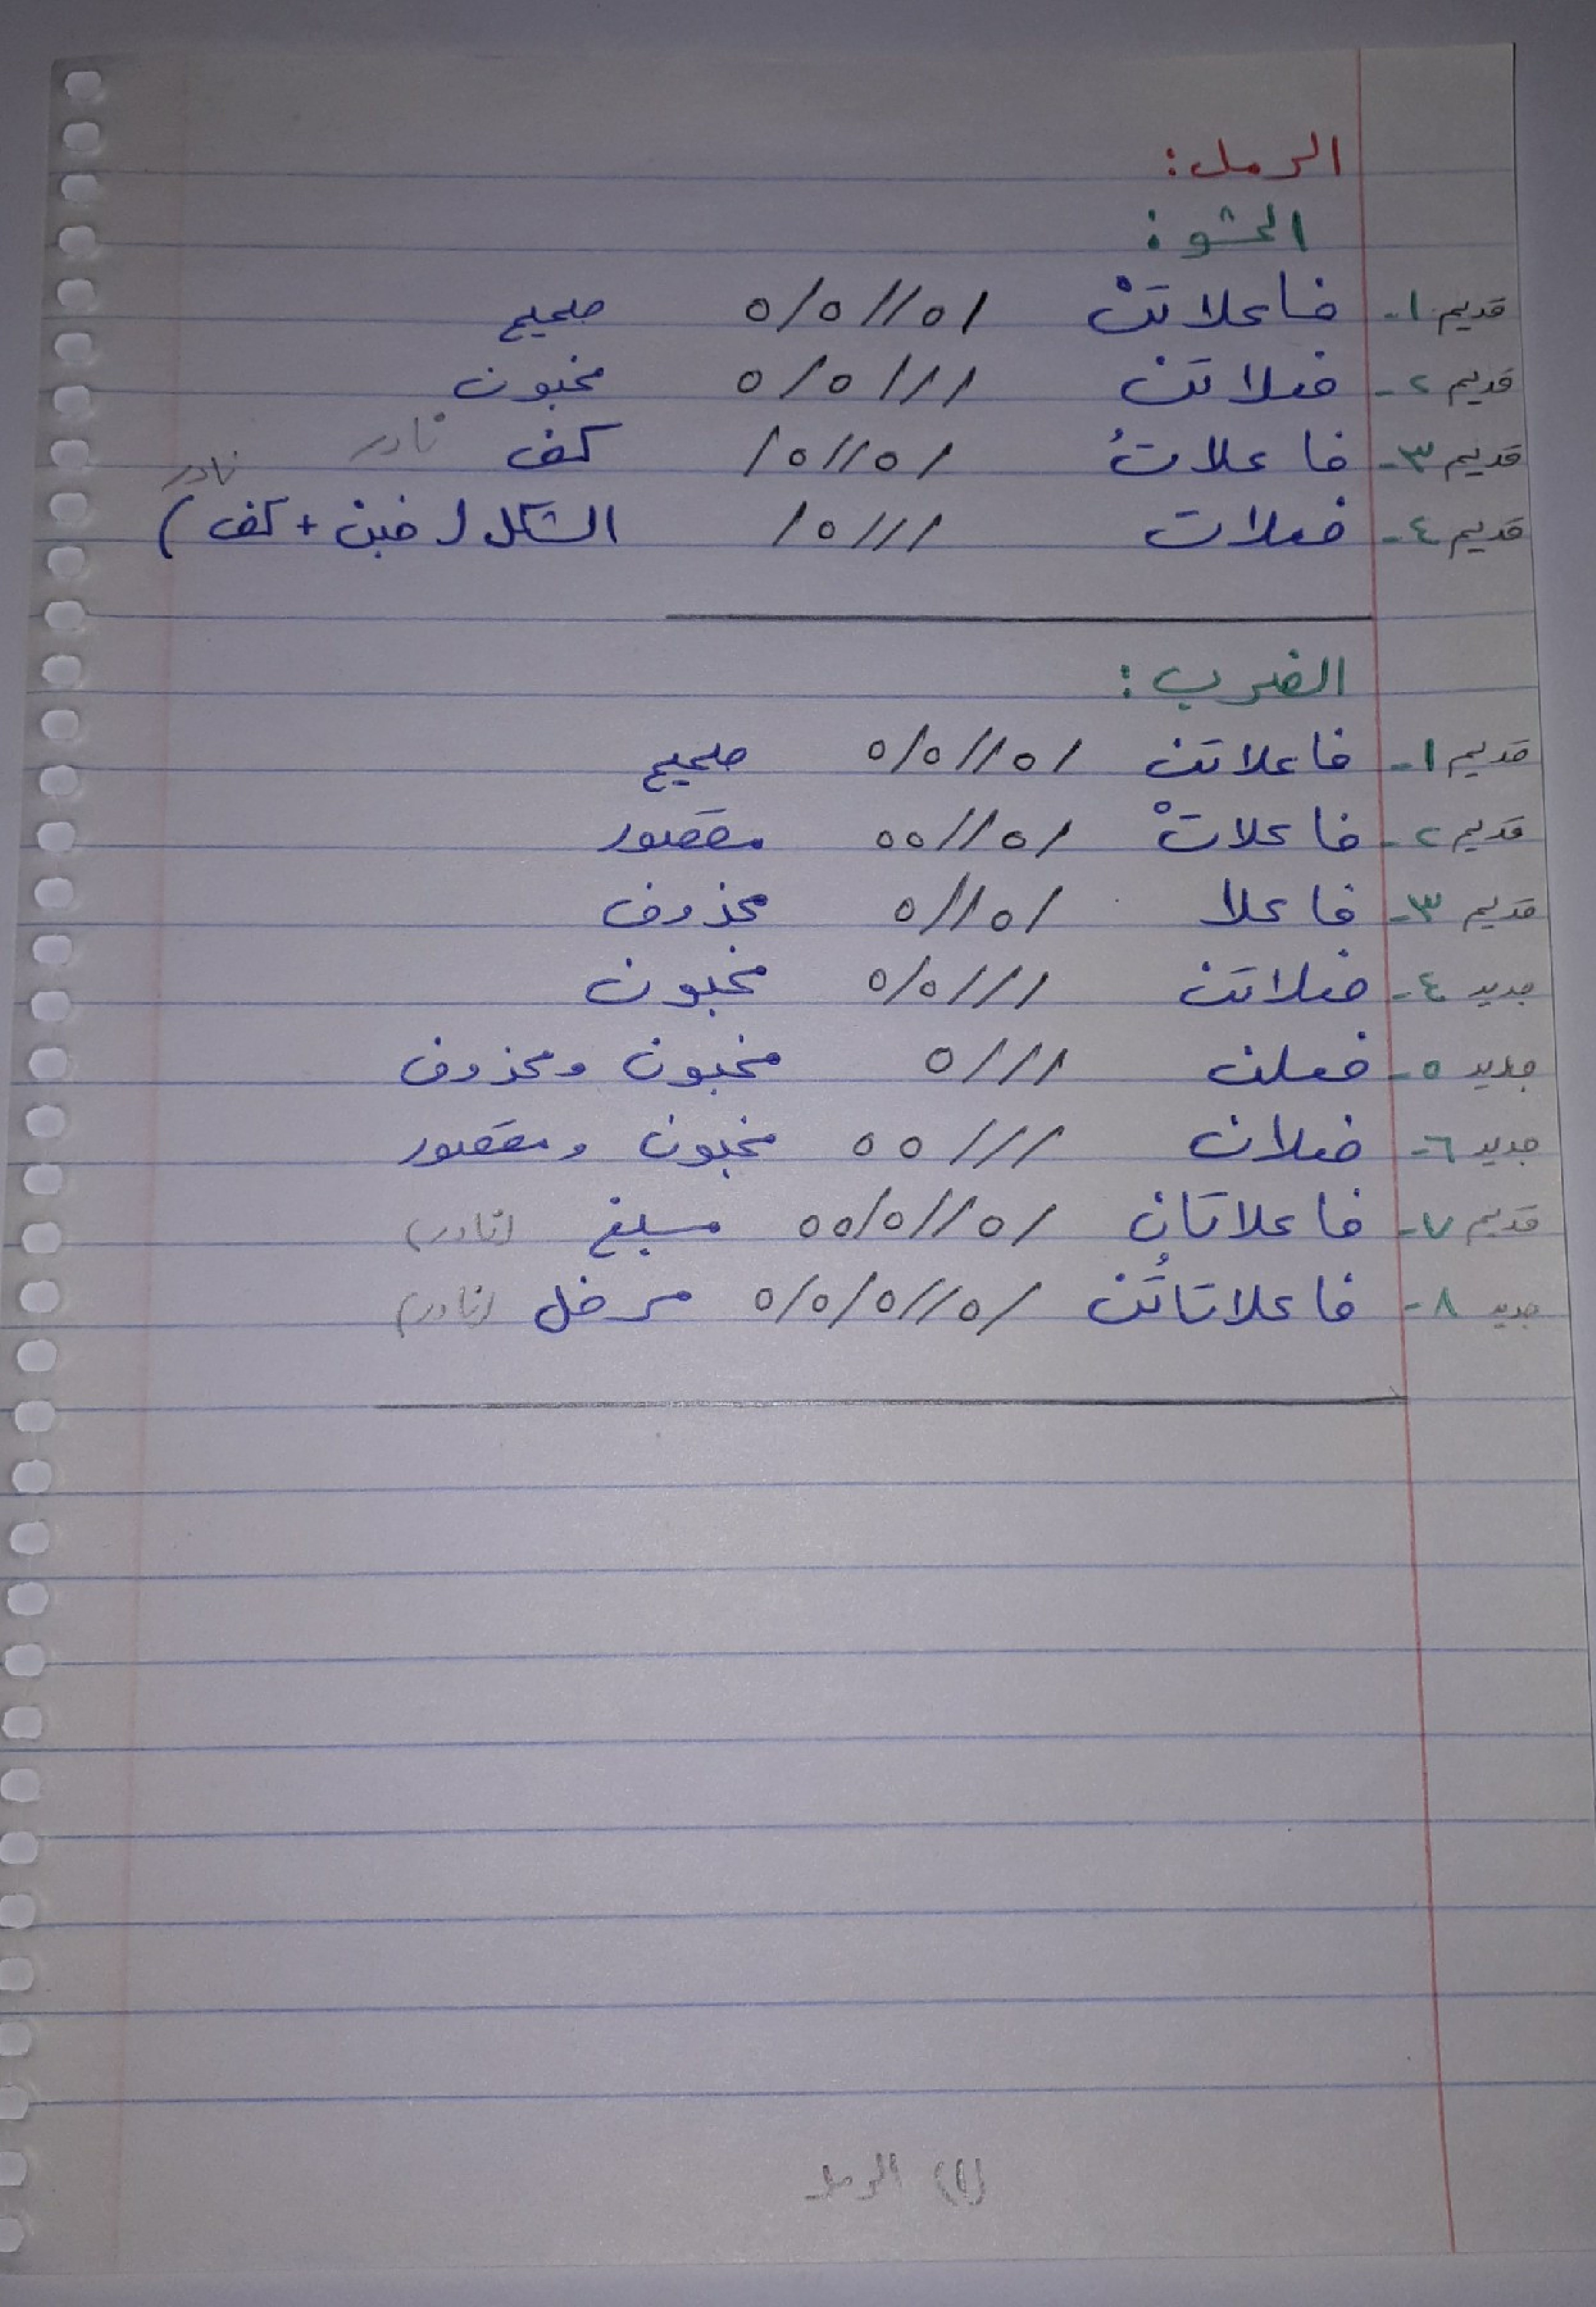 الرمل:
الحشو:
قديم ١- فاعلاتنْ /٥//٥/٥ صحيح
قديم ٢- فعلاتن ///٥/٥ مخبون
قديم ٣- فاعلاتُ /٥//٥/ كف نادر
قديم ٤- فعلات ///٥/ الشكل (خبن + كف) نادر
الضرب:
قديم ١- فاعلاتن /٥//٥/٥ صحيح
قديم ٢- فاعلاتْ /٥//٥٥ مقصور
قديم ٣- فاعلا /٥//٥ محذوف
جديد ٤- فعلاتن ///٥/٥ مخبون
جديد ٥- فعلن ///٥ مخبون ومحذوف
جديد ٦- فعلان ///٥٥ مخبون ومقصور
قديم ٧- فاعلاتان /٥//٥/٥٥ مسبغ (نادر)
جديد ٨- فاعلاتاتُن /٥//٥/٥/٥ مرفل (نادر)
(١) الرمل